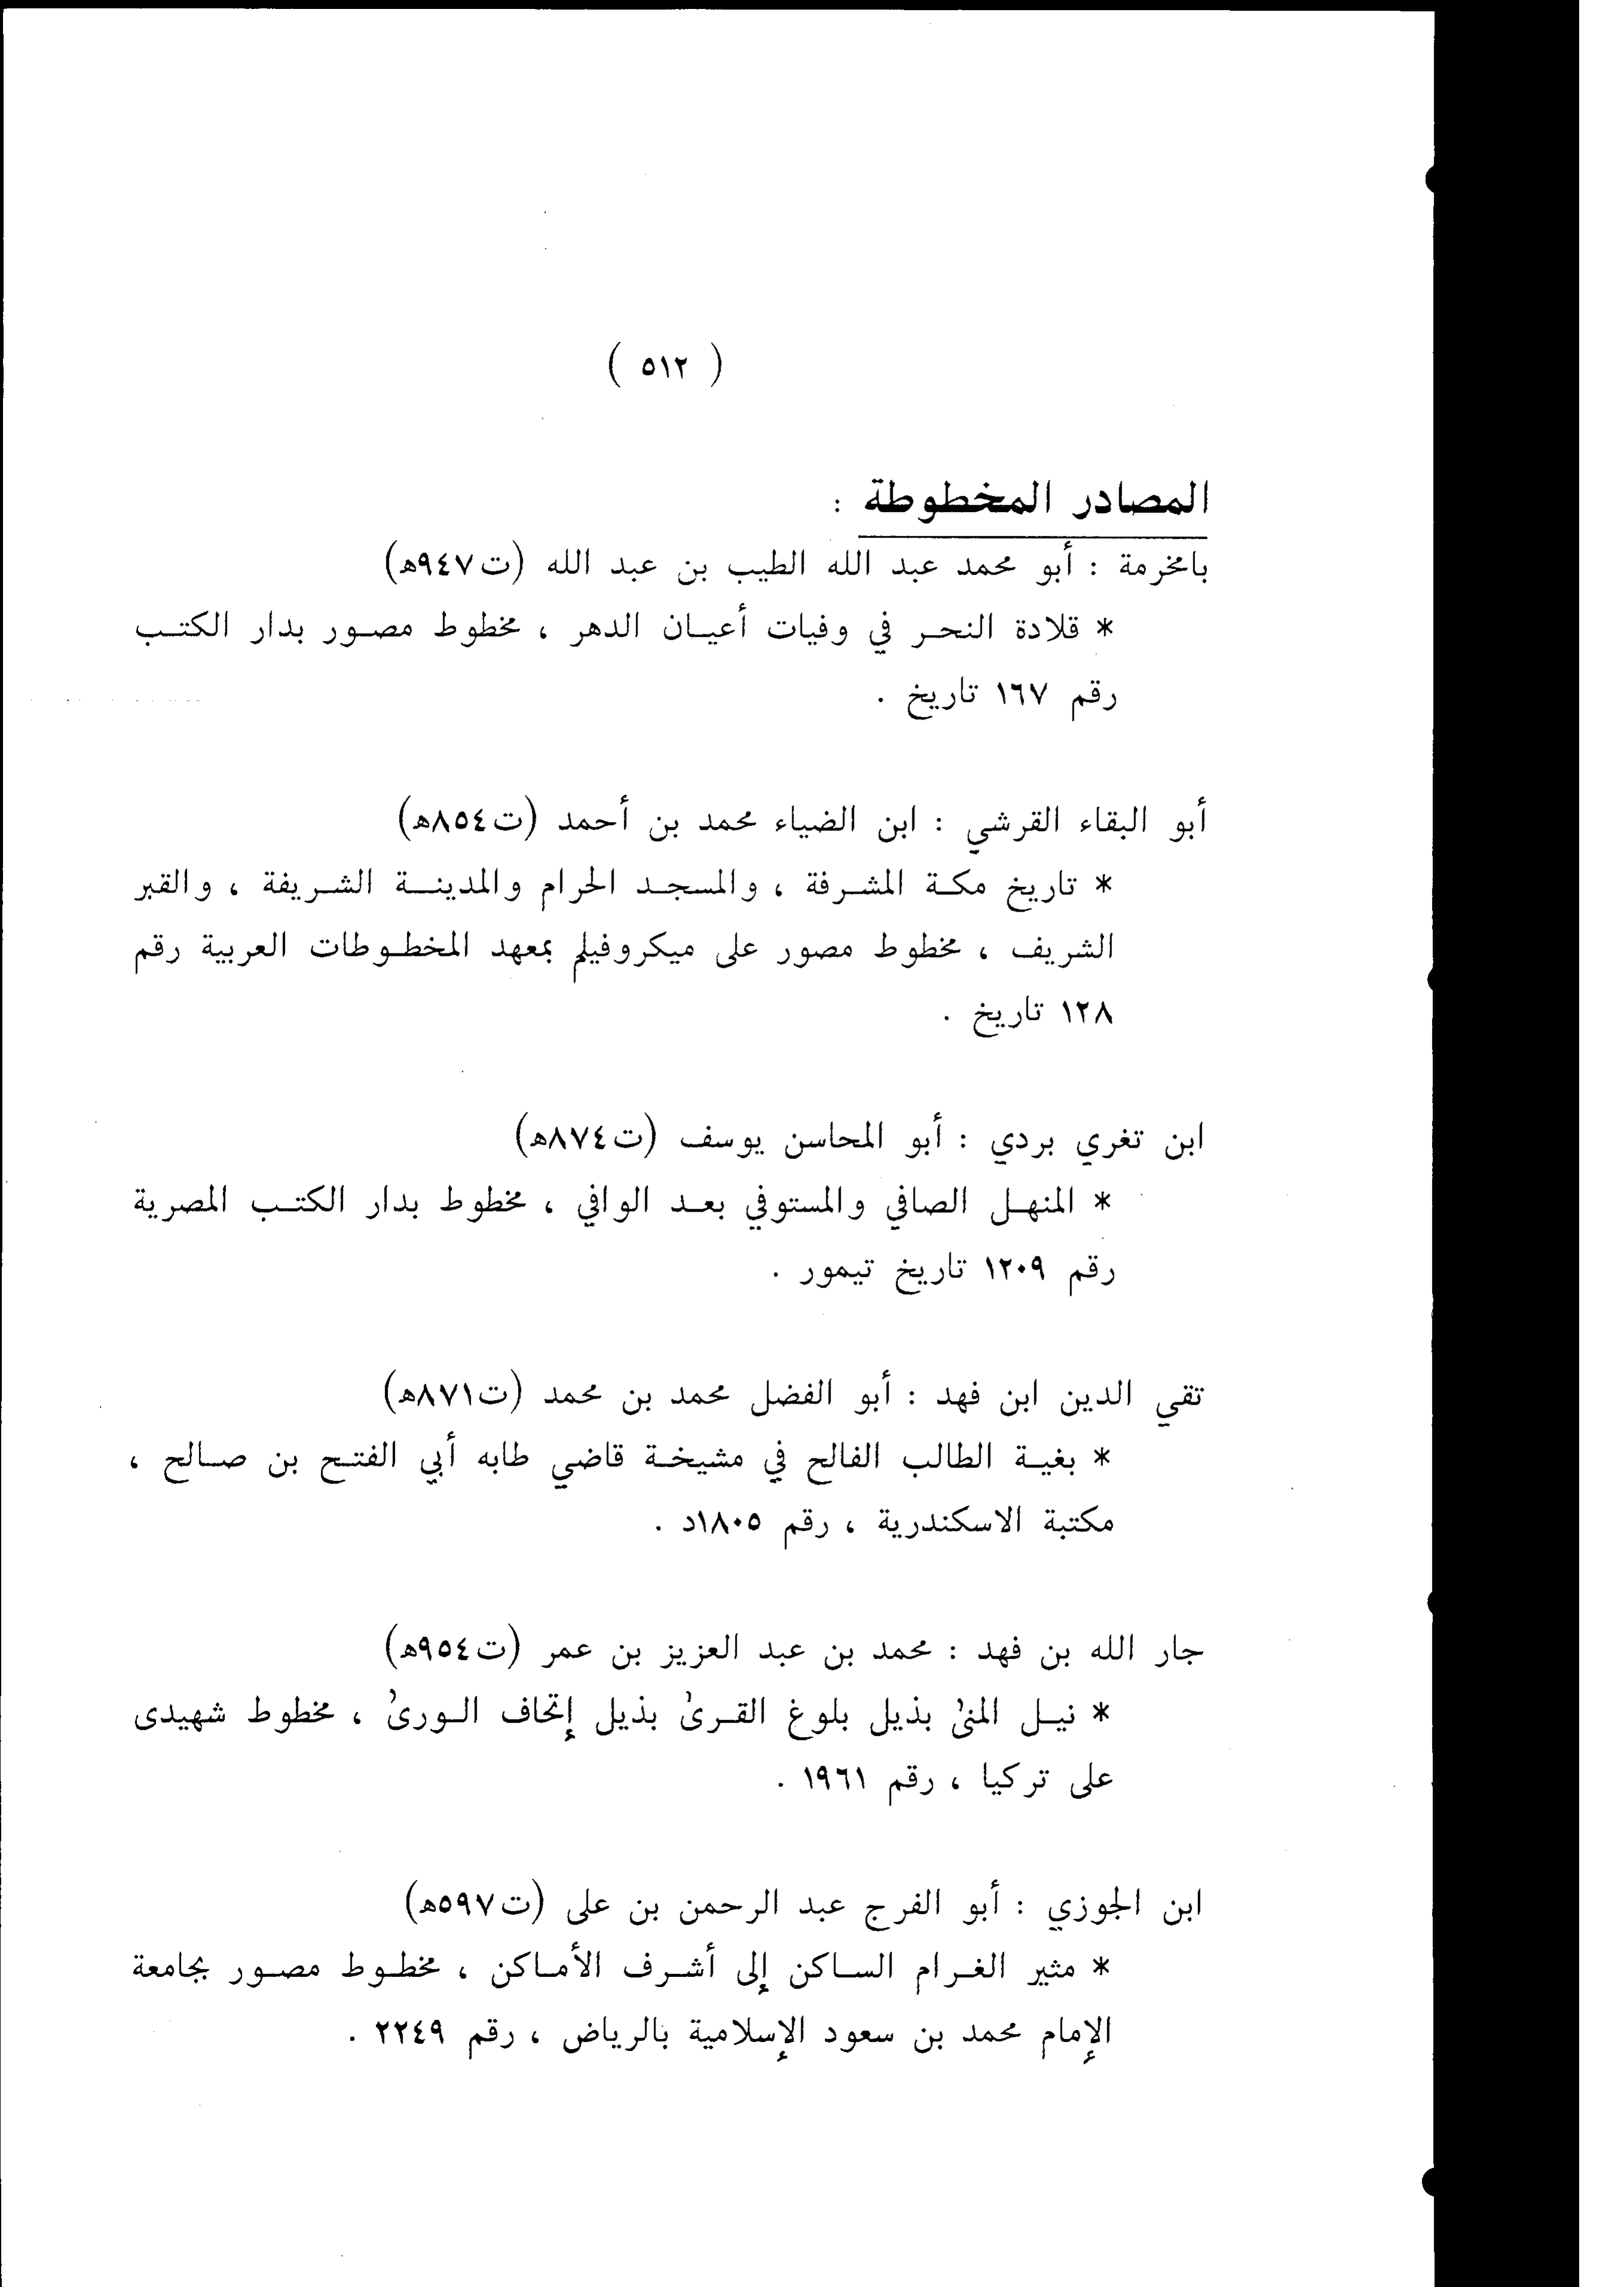 ( ٥١٢ )
المصادر المخطوطة :
بامخرمة : أبو محمد عبد الله الطيب بن عبد الله (ت٩٤٧هـ)
* قلادة النحر في وفيات أعيان الدهر ، مخطوط مصور بدار الكتب
رقم ١٦٧ تاريخ .
أبو البقاء القرشي : ابن الضياء محمد بن أحمد (ت٨٥٤هـ)
* تاريخ مكة المشرفة ، والمسجد الحرام والمدينة الشريفة ، والقبر
الشريف ، مخطوط مصور على ميكروفيلم بمعهد المخطوطات العربية رقم
١٢٨ تاريخ .
ابن تغري بردي : أبو المحاسن يوسف (ت٨٧٤هـ)
* المنهل الصافي والمستوفي بعد الوافي ، مخطوط بدار الكتب المصرية
رقم ١٢٠٩ تاريخ تيمور .
تقي الدين ابن فهد : أبو الفضل محمد بن محمد (ت٨٧١هـ)
* بغية الطالب الفالح في مشيخة قاضي طابه أبي الفتح بن صالح ،
مكتبة الاسكندرية ، رقم ١٨٠٥د .
جار الله بن فهد : محمد بن عبد العزيز بن عمر (ت٩٥٤هـ)
* نيل المنىٰ بذيل بلوغ القرىٰ بذيل إتحاف الورىٰ ، مخطوط شهيدى
على تركيا ، رقم ١٩٦١ .
ابن الجوزي : أبو الفرج عبد الرحمن بن على (ت٥٩٧هـ)
* مثير الغرام الساكن إلى أشرف الأماكن ، مخطوط مصور بجامعة
الإمام محمد بن سعود الإسلامية بالرياض ، رقم ٢٢٤٩ .